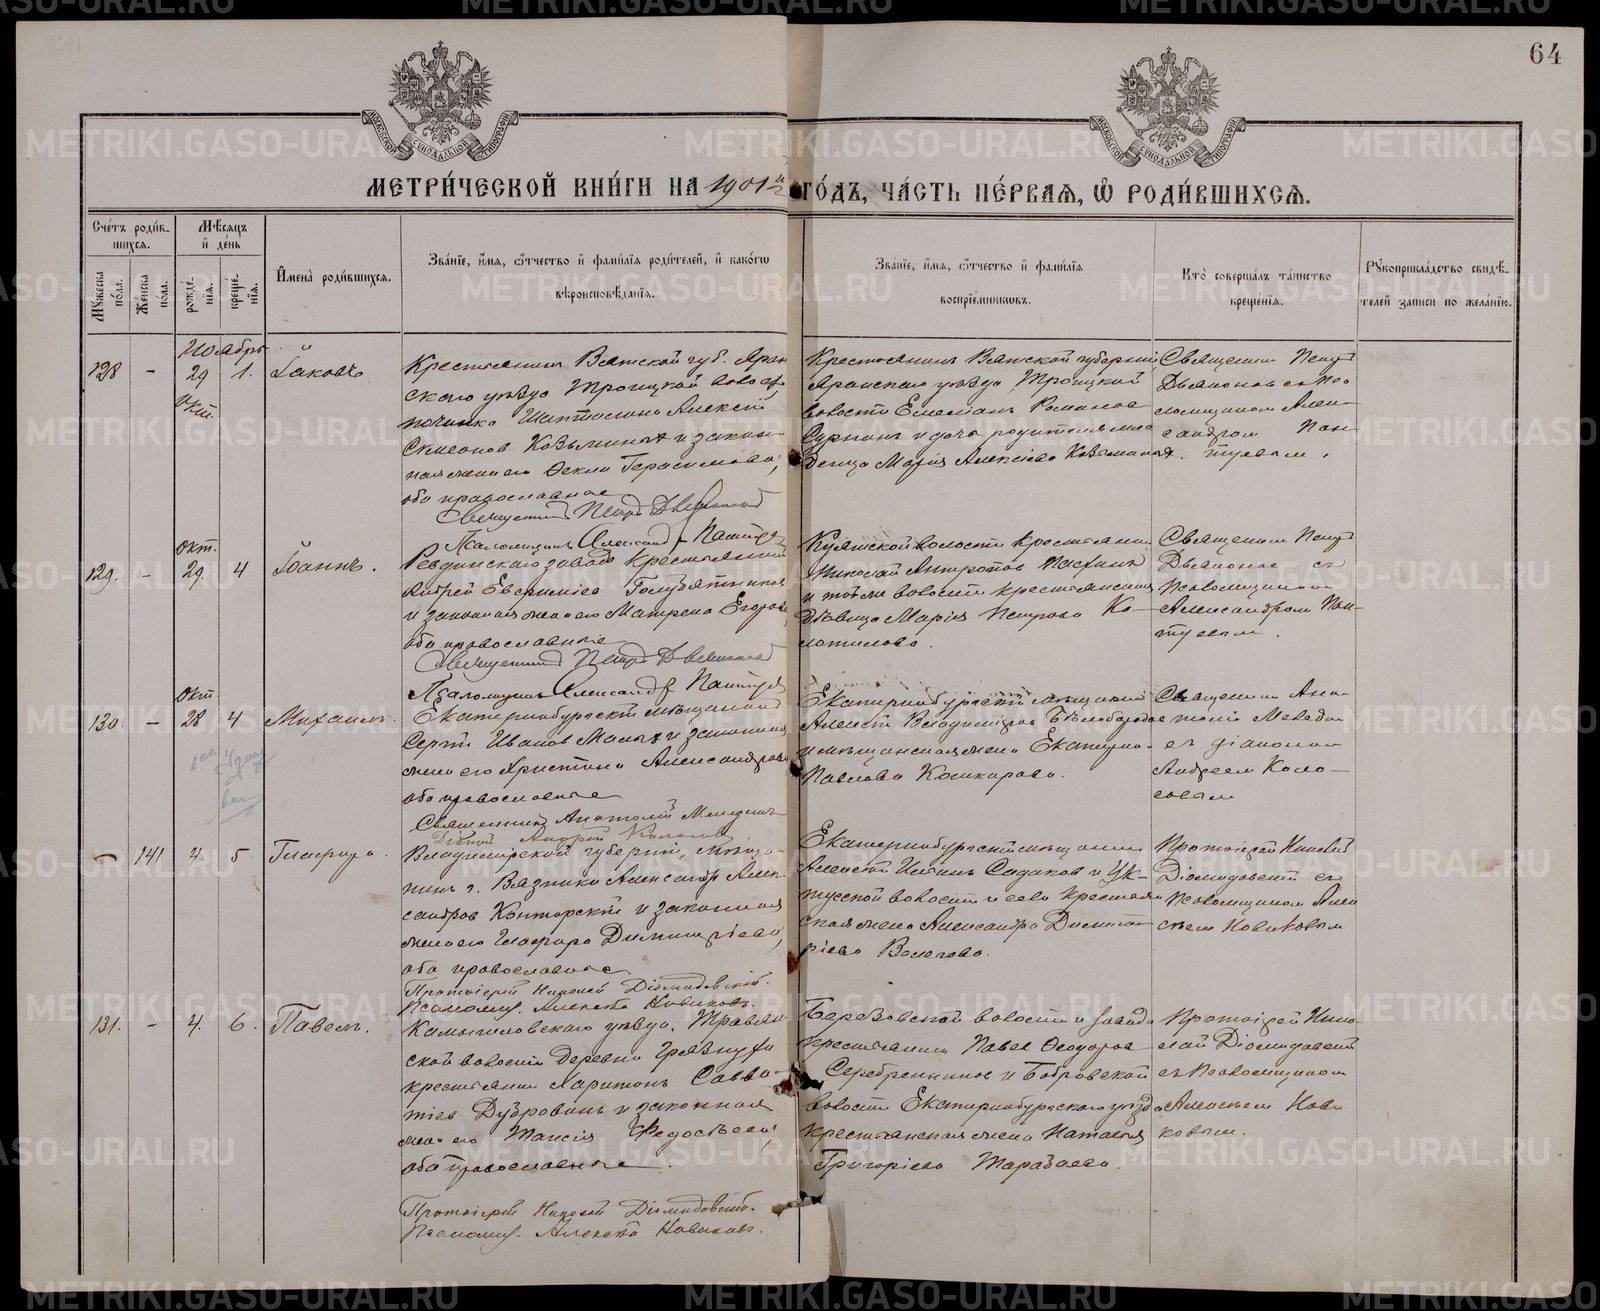 64
МОСКОВСКОЙ СѴНОДАЛЬНОЙ ТИПОГРАФІИ
МОСКОВСКОЙ СѴНОДАЛЬНОЙ ТИПОГРАФІИ
МЕТРИ́ЧЕСКОЙ КНИ́ГИ НА 1901й ГО́ДЪ, ЧА́СТЬ ПЕ́РВАЯ, Ѡ РОДИ́ВШИХСЯ.
Сче́тъ роди́вшихся.
Му́жеска по́ла.
Же́нска по́ла.
Мѣ́сяцъ и де́нь
рожде́нія.
креще́нія.
И҆мена̀ роди́вшихся.
Зва́ніе, и҆́мя, ѻ҆́тчество и҆ фами́лія роди́телей, и҆ како́гѡ
вѣроисповѣ́данія.
Зва́ніе, и҆́мя, ѻ҆́тчество и҆ фами́лія
воспріе́мникѡвъ.
Кто̀ соверша́лъ та́инство
креще́нія.
Рꙋкоприкла́дство свидѣ́телей за́писи по жела́нію.
Ноябрь
128 - 29 1. Іаковъ
Окт.
Крестьянинъ Вятской губ. Яран
скаго уѣзда Троицкой волости,
починка Алексій
Симеоновъ Козьминых и закон-
ная жена его Ѳекла Герасимова,
оба православные
Священникъ Петръ Дьяконовъ
Псаломщикъ Александръ Пантуевъ
Крестьянинъ Вятской губерніи,
Яранскаго уѣзда, Троицкой
волости Емеліанъ Романовъ
и дочь родителя де
вица Марія Алексіева Козьминыхъ.
Священникъ Петръ
Дьяконовъ съ пса
ломщикомъ Алек-
сандром Пан-
туевым.
129. - окт. 29. 4 Іоаннъ.
Ревдинскаго завода крестьянинъ
Андрей Евфиміевъ Голубятников
и законная жена его Матрона Егорова,
оба православные
Священникъ Петръ Дьяконовъ
Псаломщикъ Александръ Пантуев
волости крестьянин
Николай Антроповъ
и той же волости крестьянская
дѣвица Марія Петрова Ко-
потилова.
Священникъ Петръ
Дьяконов съ
Псаломщиком
Александром Пан-
туевым.
130. - окт. 28 4 Михаилъ.
Екатеринбургскій мѣщанинъ
Сергій Иванов Малых и законная
жена его Христина Александрова
оба православные
Священникъ Анатолій
Діаконъ Андрей Колосовъ
Екатеринбургскій мѣщанинъ
Алексій Владиміровъ Бѣлобородов
и мѣщанская жена Екатерина
Павлова Кошкарова.
Священникъ Ана-
толій
съ діаконом
Андреем Коло-
совым
— 141 4. 5. Глафира.
Владимірской губерніи, мѣща-
нинъ г. Вязники Александръ Алек-
сандров Конторскій и законная
жена его Глафира Димитріева,
оба православные.
Протоіерей Николай Діомидовскій.
Псаломщ. Алексѣй Новиковъ.
Екатеринбургскій мѣщанинъ
Алексій Садаков и Ук-
тусской волости и села крестьян
ская жена Александра Димит-
ріева
Протоіерей Николай
Діомидовскій съ
Псаломщиком Алек
сѣем Новиковым
131. - 4. 6. Павелъ.
Камышловскаго уѣзда, Травян-
ской волости деревни Грязнухи
крестьянинъ Харитонъ Савва-
тіев Дубровинъ и законная
жена его Таисія Ѳедосѣева,
оба православные.
Протоіерей Николай Діомидовскій.
Псаломщ. Алексѣй Новиковъ.
Березовской волости и завода
крестьянинъ Павел Ѳеодоров
Серебренников и Бобровской
волости Екатеринбургскаго уѣзда
крестьянская жена Наталія
Григоріева Тарабаева.
Протоіерей Нико-
лай Діомидовскій
съ Псаломщиком
Алексѣем Нови
ковым.
METRIKI.GASO-URAL.RU